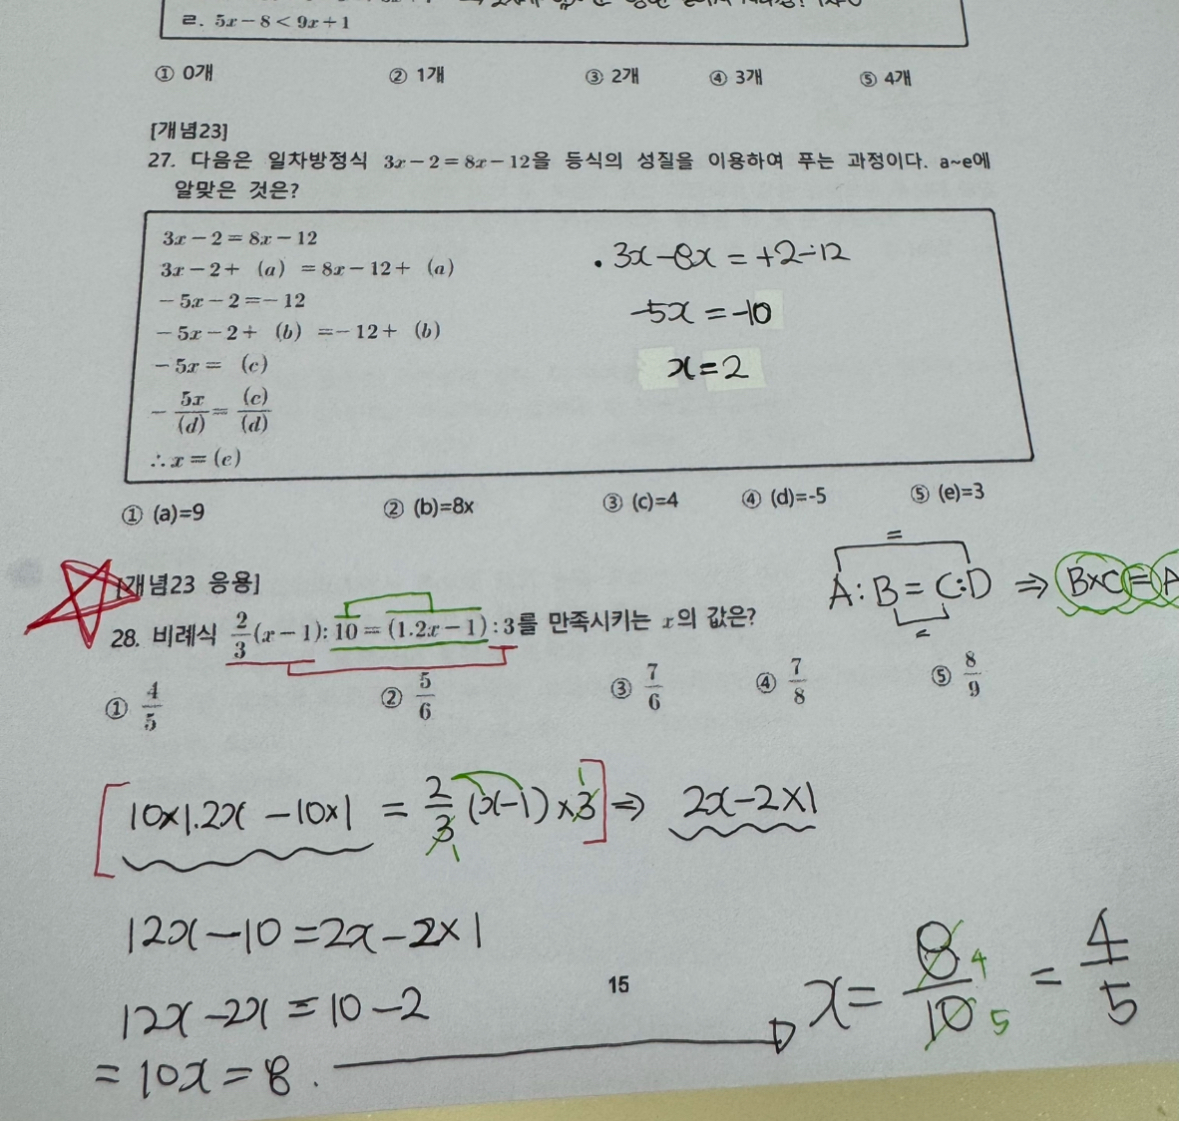 ㄹ. 5x－8＜9x＋1
① 0개 ② 1개 ③ 2개 ④ 3개 ⑤ 4개
[개념23]
27. 다음은 일차방정식 3x－2＝8x－12을 등식의 성질을 이용하여 푸는 과정이다. a~e에
알맞은 것은?
3x－2＝8x－12
3x－2＋ (a) ＝8x－12＋ (a)
－5x－2＝－12
－5x－2＋ (b) ＝－12＋ (b)
－5x＝ (c)
－5x/(d)＝(c)/(d)
∴x＝(e)
. 3x－8x＝+2－12
－5x＝－10
x＝2
① (a)=9 ② (b)=8x ③ (c)=4 ④ (d)=-5 ⑤ (e)=3
=
A:B=C:D ⇒ B×C=A
=
[개념23 응용]
28. 비례식 2/3(x－1):10＝(1.2x－1):3를 만족시키는 x의 값은?
① 4/5 ② 5/6 ③ 7/6 ④ 7/8 ⑤ 8/9
[10×1.2x－10×1 = 2/3(x－1)×3] ⇒ 2x－2×1
1 1
12x－10=2x－2×1
12x－2x=10－2
=10x=8.
x=8/10=4/5
4 5
15